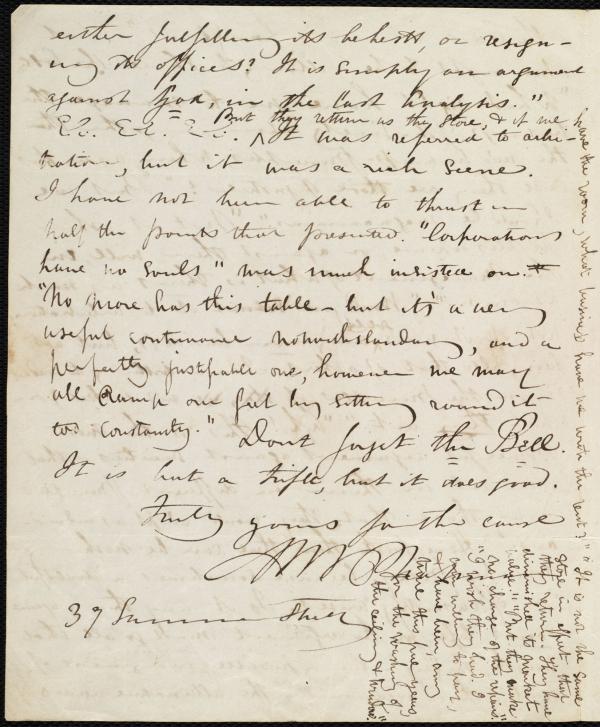 either fulfilling its behests, or resign-
ing its offices? It is simply an argument
against God, in the last analysis."
Etc. Etc. Etc. But they return us the Store, & if we
It was referred to arbi-
tration, but it was a rich scene.
I have not been able to thrust in
half the points that presented. "Corporations
have no souls" was much insisted on.
"No more has this table - but it's a very
useful contrivance notwithstanding, and a
perfectly justifiable one, however we may
all cramp our feet by sitting round it
too constantly." Dont forget the Bell.
It is but a trifle, but it does good.
Truly yours for the cause
37 Summer Street
have the room, what business have we with the rent?" "It is not the same
Store in effect that
they return. They have
diminished its market
value." "But they make
no charge of the repairs."
"I wish they had. I
am willing to pay,
& have been, any
time this five years
for the washing of
the ceiling & windows."